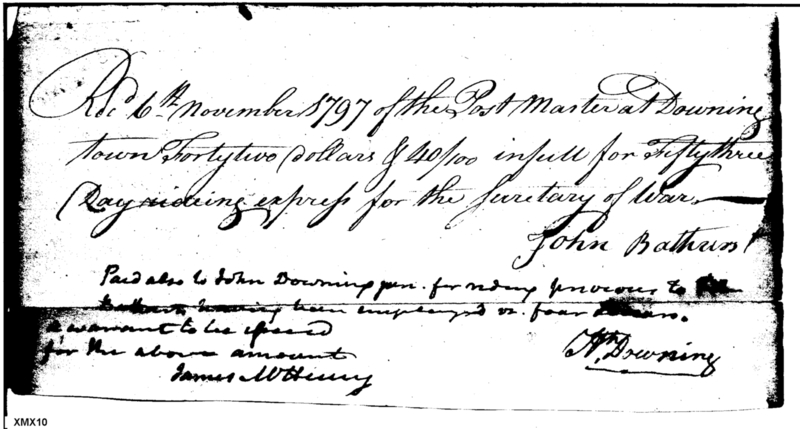 Recd 6th November 1797 of the Post Master at Downing
town Fortytwo Dollars & 40/100 in full for Fifty three
Day rideing express for the Secretary of War.
John Bathurst
Paid also to John Downing jun. for riding previous to
Bathurst having been employed vz. four dollars.
a warrant to be issued
for the above amount
James McHenry
Hr. Downing
XMX10